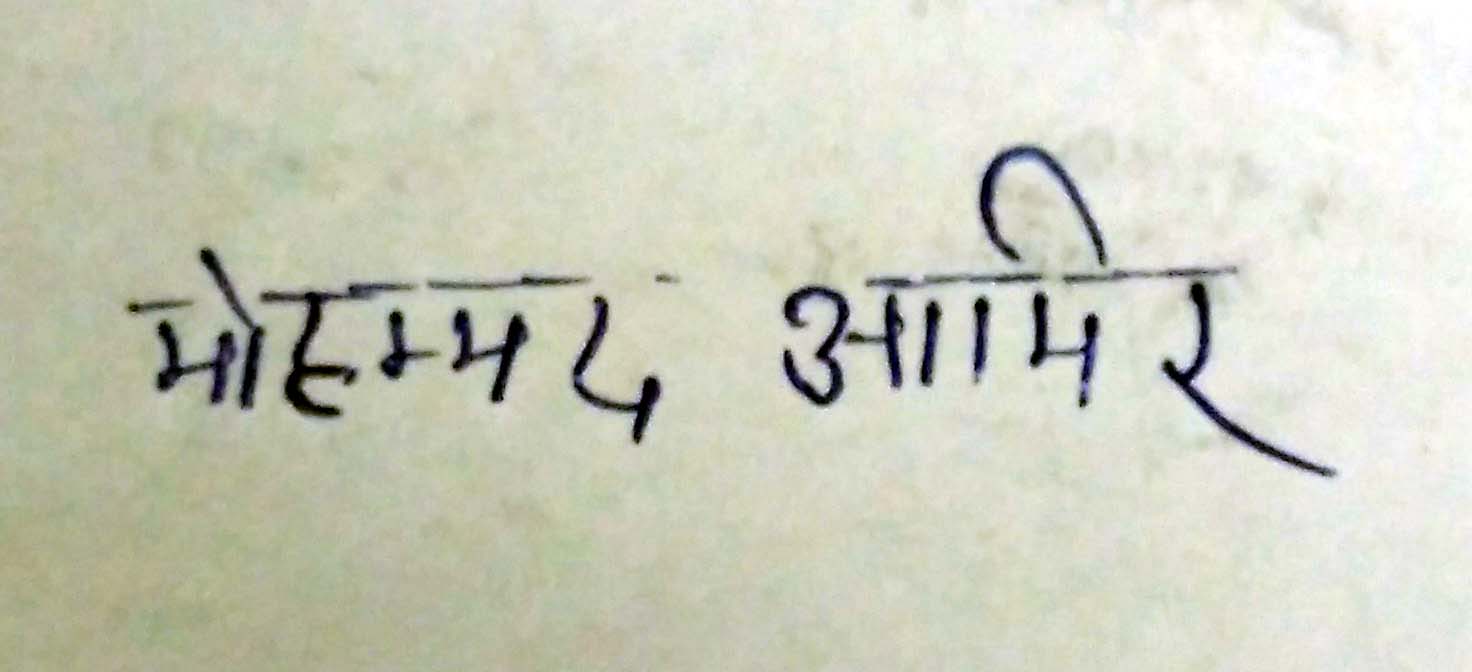 मोहम्मद आमिर